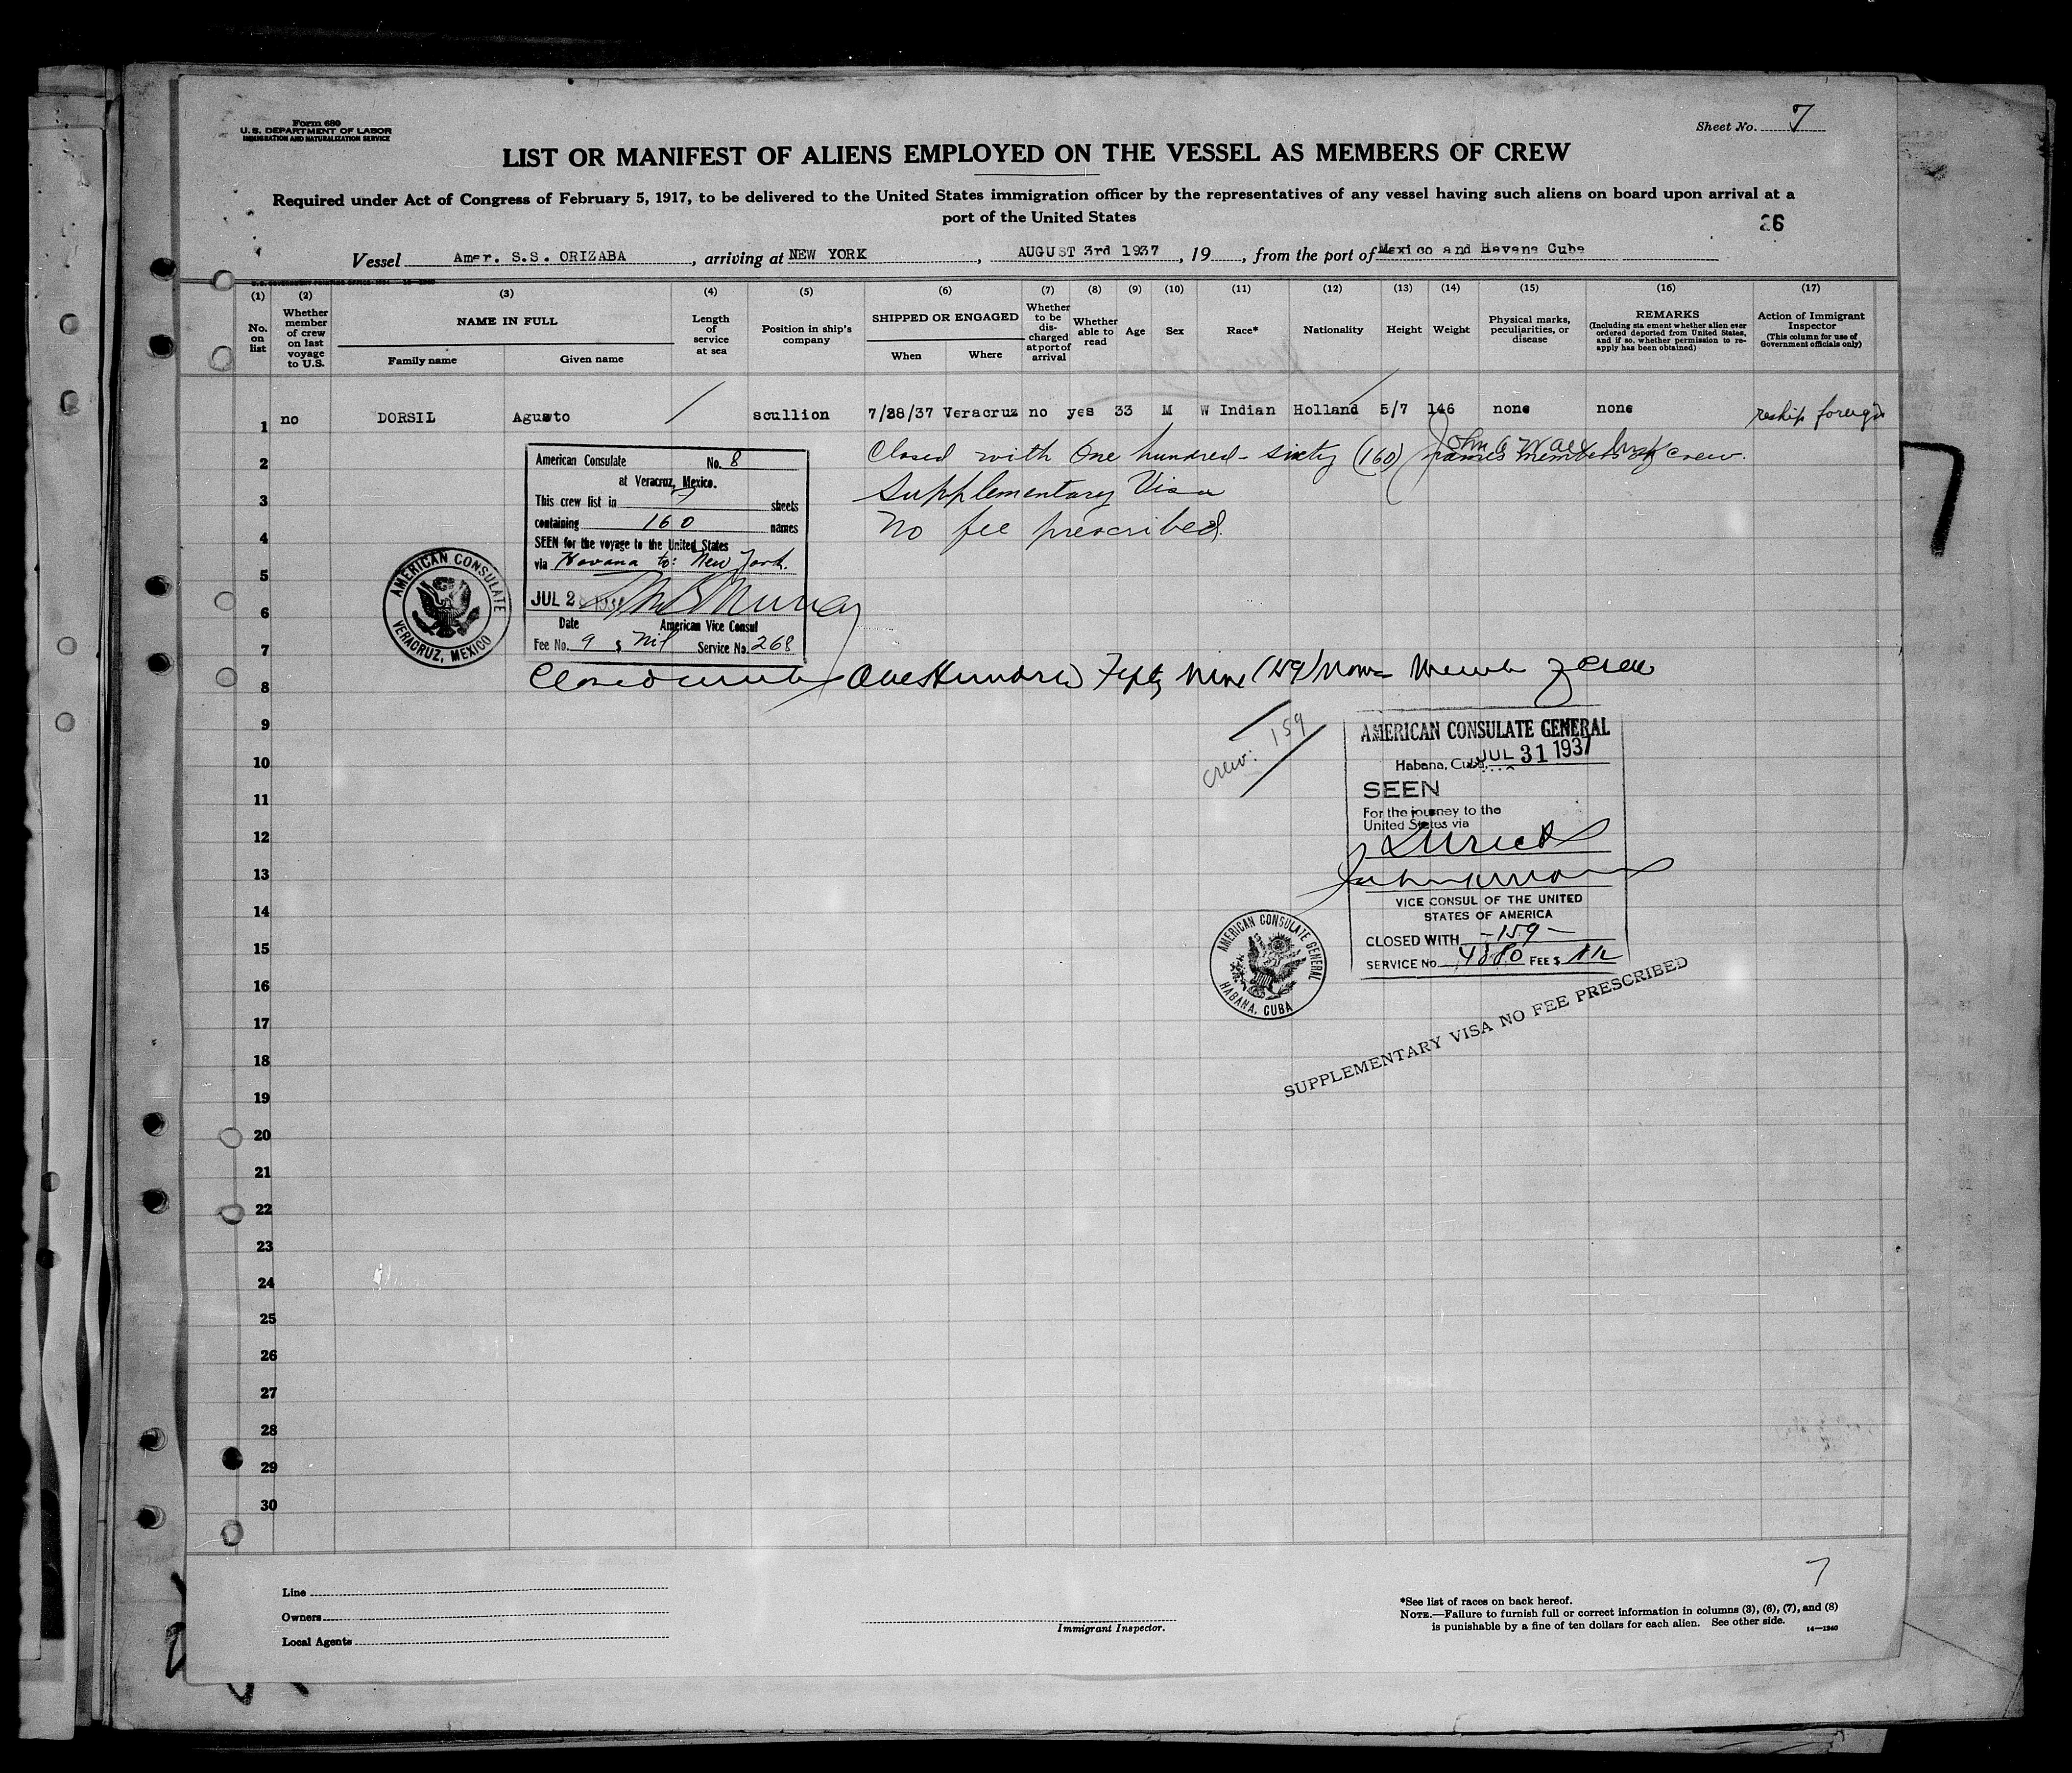 Form 680
U. S. DEPARTMENT OF LABOR
IMMIGRATION AND NATURALIZATION SERVICE
Sheet No. 7
LIST OR MANIFEST OF ALIENS EMPLOYED ON THE VESSEL AS MEMBERS OF CREW
Required under Act of Congress of February 5, 1917, to be delivered to the United States immigration officer by the representatives of any vessel having such aliens on board upon arrival at a
port of the United States
26
Vessel Amer. S.S. ORIZABA, arriving at NEW YORK, AUGUST 3rd 1937, 19, from the port of Mexico and Havana Cuba
(1) (2) (3) (4) (5) (6) (7) (8) (9) (10) (11) (12) (13) (14) (15) (16) (17)
No. on list
Whether member of crew on last voyage to U.S.
NAME IN FULL
Family name Given name
Length of service at sea
Position in ship's company
SHIPPED OR ENGAGED
When Where
Whether to be discharged at port of arrival
Whether able to read
Age
Sex
Race*
Nationality
Height
Weight
Physical marks, peculiarities, or disease
REMARKS
(Including statement whether alien ever ordered deported from United States, and if so, whether permission to reapply has been obtained)
Action of Immigrant Inspector
(This column for use of Government officials only)
1 no DORSIL Agusto / scullion 7/28/37 Veracruz no yes 33 M W Indian Holland 5/7 146 none none reship foreign
2 Closed with One hundred-sixty (160) names members of crew.
3 Supplementary Visa
4 No fee prescribed.
American Consulate No. 8
at Veracruz, Mexico.
This crew list in 7 sheets
containing 160 names
SEEN for the voyage to the United States
via Havana to: New York.
JUL 28 1937 Murray
Date American Vice Consul
Fee No. 9 $ Nil Service No. 268
AMERICAN CONSULATE
VERACRUZ, MEXICO
5
6
7
8 Closed with One Hundred Fifty Nine (159) Names Members of Crew
9
10
11
12
13
14
15
16
17
18
19
20
21
22
23
24
25
26
27
28
29
30
crew: 159
AMERICAN CONSULATE GENERAL
Habana, Cuba, JUL 31 1937
SEEN
For the journey to the
United States via
Direct
VICE CONSUL OF THE UNITED
STATES OF AMERICA
CLOSED WITH -159-
SERVICE No. 4880 FEE $
AMERICAN CONSULATE GENERAL
HABANA, CUBA
SUPPLEMENTARY VISA NO FEE PRESCRIBED
7
7
Line
Owners
Local Agents
Immigrant Inspector.
*See list of races on back hereof.
NOTE.—Failure to furnish full or correct information in columns (3), (6), (7), and (8)
is punishable by a fine of ten dollars for each alien. See other side.
14—1240